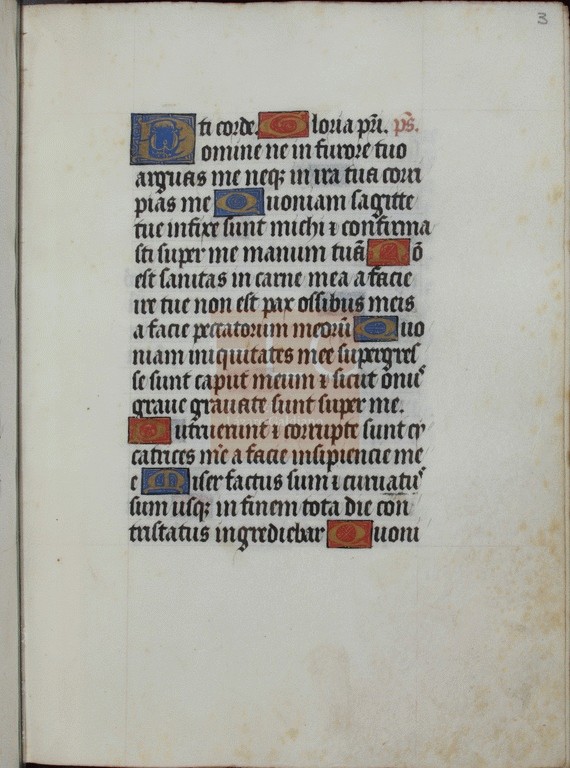 3
ti corde. Gloria pr̄i. ps̄.
Domine ne in furore tuo
arguas me neqꝫ in ira tua corri
pias me Quoniam sagitte
tue infixe sunt michi ⁊ confirma
sti super me manum tuā Nō
est sanitas in carne mea a facie
ire tue non est pax ossibus meis
a facie peccatorum meorū Quo
niam iniquitates mee supergres
se sunt caput meum ⁊ sicut onus
graue grauate sunt super me.
Putruerunt ⁊ corrupte sunt cy
catrices mee a facie insipiencie me
e Miser factus sum ⁊ curuatus
sum usqꝫ in finem tota die con
tristatus ingrediebar Quoni